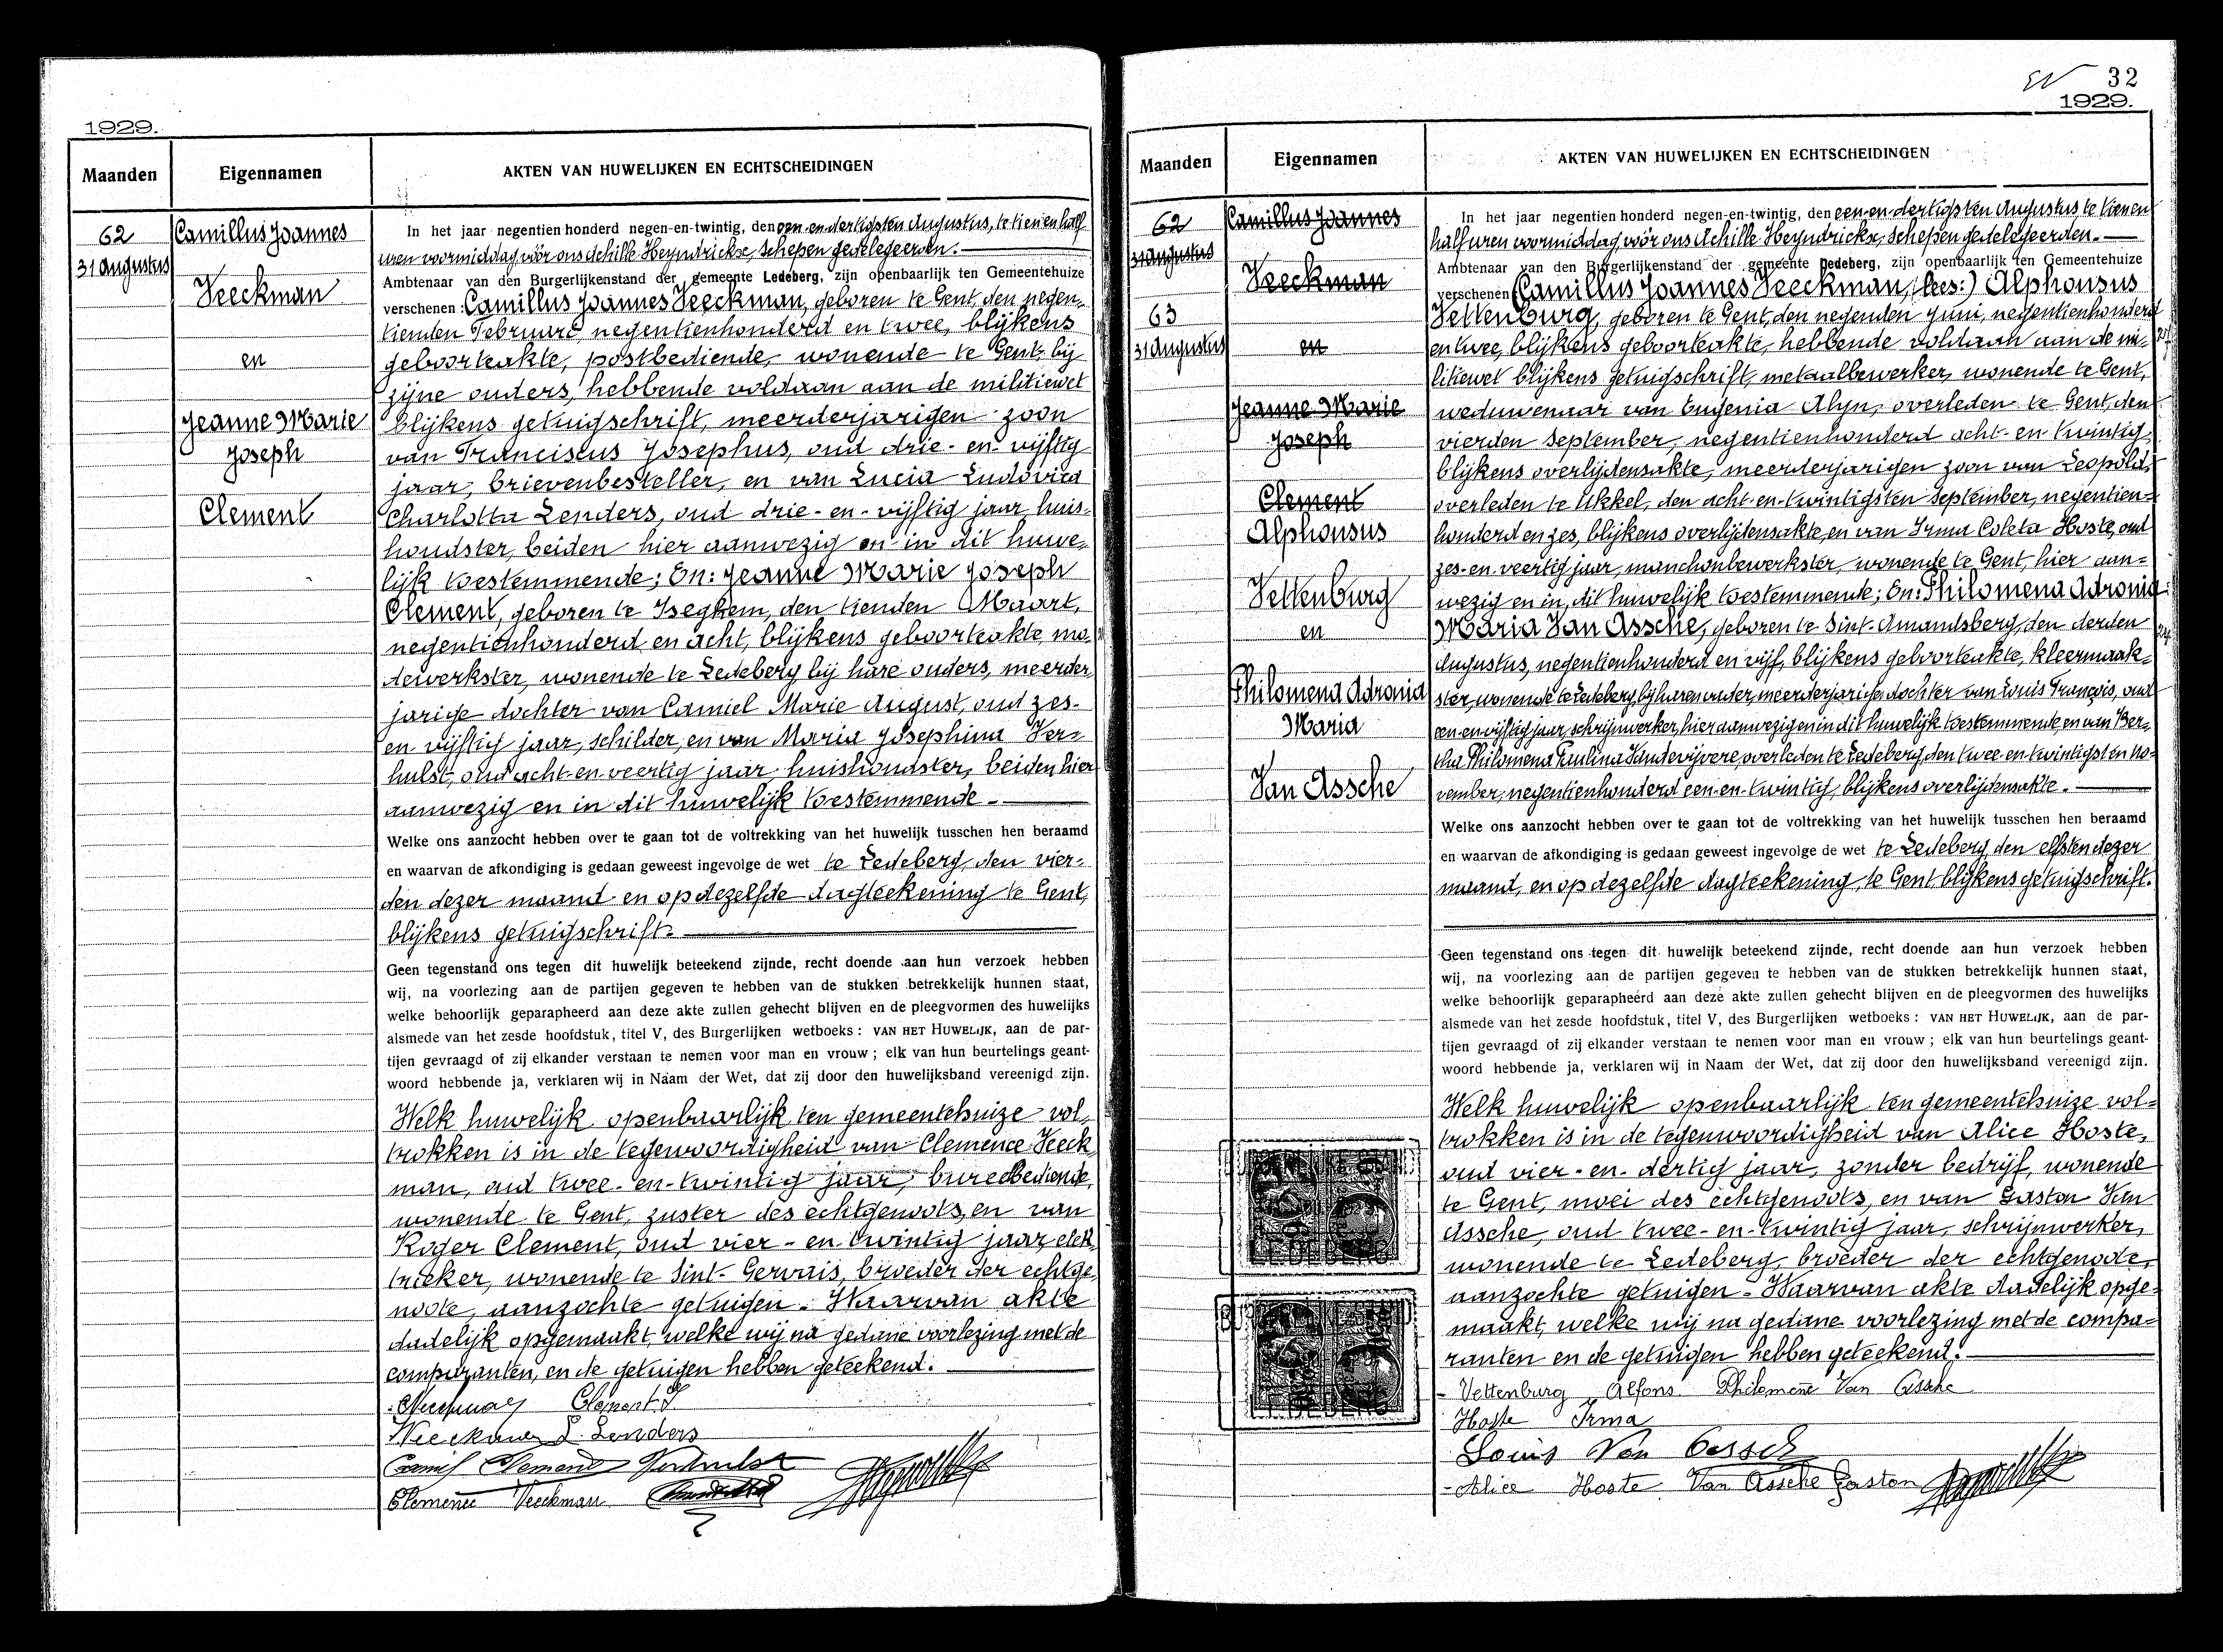 1929.
Maanden
Eigennamen
AKTEN VAN HUWELIJKEN EN ECHTSCHEIDINGEN
62
31 Augustus
Camillus Joannes
Veeckman
en
Jeanne Marie
Joseph
Clement
In het jaar negentien honderd negen-en-twintig, den een-en-dertigsten Augustus, te tien en half
uren voormiddag vóór ons Achille Heyndrickx, Schepen gedelegeerden.
Ambtenaar van den Burgerlijkenstand der gemeente Ledeberg, zijn openbaarlijk ten Gemeentehuize
verschenen: Camillus Joannes Veeckman, geboren te Gent, den negen-
tienden Februari, negentienhonderd en twee, blijkens
geboorteakte, postbediende, wonende te Gent bij
zijne ouders, hebbende voldaan aan de militiewet
blijkens getuigschrift, meerderjarigen zoon
van Franciscus Josephus, oud drie-en-vijftig
jaar, brievenbesteller, en van Lucia Ludovica
Charlotta Lenders, oud drie-en-vijftig jaar, huis-
houdster, beiden hier aanwezig en in dit huwe-
lijk toestemmende; En: Jeanne Marie Joseph
Clement, geboren te Iseghem, den tienden Maart,
negentienhonderd en acht, blijkens geboorteakte, mo-
dewerkster, wonende te Ledeberg bij hare ouders, meerder-
jarige dochter van Camiel Marie August, oud zes-
en-vijftig jaar, schilder, en van Maria Josephina Ver-
hulst, oud acht-en-veertig jaar, huishoudster, beiden hier
aanwezig en in dit huwelijk toestemmende.
Welke ons aanzocht hebben over te gaan tot de voltrekking van het huwelijk tusschen hen beraamd
en waarvan de afkondiging is gedaan geweest ingevolge de wet te Ledeberg, den vier-
den dezer maand en op dezelfde dagteekening te Gent,
blijkens getuigschrift.
Geen tegenstand ons tegen dit huwelijk beteekend zijnde, recht doende aan hun verzoek hebben
wij, na voorlezing aan de partijen gegeven te hebben van de stukken betrekkelijk hunnen staat,
welke behoorlijk geparapheerd aan deze akte zullen gehecht blijven en de pleegvormen des huwelijks
alsmede van het zesde hoofdstuk, titel V, des Burgerlijken wetboeks: VAN HET HUWELIJK, aan de par-
tijen gevraagd of zij elkander verstaan te nemen voor man en vrouw; elk van hun beurtelings geant-
woord hebbende ja, verklaren wij in Naam der Wet, dat zij door den huwelijksband vereenigd zijn.
Welk huwelijk openbaarlijk ten gemeentehuize vol-
trokken is in de tegenwoordigheid van Clemence Veeck-
man, oud twee-en-twintig jaar, bureelbediende,
wonende te Gent, zuster des echtgenoots, en van
Roger Clement, oud vier-en-twintig jaar, elek-
trieker, wonende te Sint-Gervais, broeder der echtge-
noote, aanzochte getuigen. Waarvan akte
dadelijk opgemaakt, welke wij na gedane voorlezing met de
comparanten, en de getuigen hebben geteekend.
CVeeckman Clement J
Veeckman L. Lenders
Camil Clement Verhulst
Clemence Veeckman
32
1929.
Maanden
Eigennamen
AKTEN VAN HUWELIJKEN EN ECHTSCHEIDINGEN
62
31 Augustus
63
31 Augustus
Camillus Joannes
Veeckman
en
Jeanne Marie
Joseph
Clement
Alphonsus
Vettenburg
en
Philomena Adronia
Maria
Van Assche
In het jaar negentien honderd negen-en-twintig, den een-en-dertigsten Augustus te tien en
half uren voormiddag vóór ons Achille Heyndrickx, Schepen gedelegeerden.
Ambtenaar van den Burgerlijkenstand der gemeente Ledeberg, zijn openbaarlijk ten Gemeentehuize
verschenen (Camillus Joannes Veeckman, (lees:) Alphonsus
Vettenburg, geboren te Gent, den negenden Juni, negentienhonderd
en twee, blijkens geboorteakte, hebbende voldaan aan de mi-
litiewet blijkens getuigschrift, metaalbewerker, wonende te Gent,
weduwenaar van Eugenia Alyn, overleden te Gent, den
vierden September, negentienhonderd acht-en-twintig,
blijkens overlijdensakte, meerderjarigen zoon van Leopold,
overleden te Ukkel, den acht-en-twintigsten September, negentien-
honderd en zes, blijkens overlijdensakte, en van Irma Coleta Hoste, oud
zes-en-veertig jaar, manchonbewerkster, wonende te Gent, hier aan-
wezig en in dit huwelijk toestemmende; En: Philomena Adronia
Maria Van Assche, geboren te Sint-Amandsberg, den derden
Augustus, negentienhonderd en vijf, blijkens geboorteakte, kleermaak-
ster, wonende te Ledeberg, bij haren ouder, meerderjarige dochter van Louis François, oud
een-en-vijftig jaar, schrijnwerker, hier aanwezig en in dit huwelijk toestemmende, en van Ber-
tha Philomena Paulina Schutevijvere, overleden te Ledeberg, den twee-en-twintigsten No-
vember, negentienhonderd een-en-twintig, blijkens overlijdensakte.
Welke ons aanzocht hebben over te gaan tot de voltrekking van het huwelijk tusschen hen beraamd
en waarvan de afkondiging is gedaan geweest ingevolge de wet te Ledeberg, den elfsten dezer
maand, en op dezelfde dagteekening, te Gent, blijkens getuigschrift.
Geen tegenstand ons tegen dit huwelijk beteekend zijnde, recht doende aan hun verzoek hebben
wij, na voorlezing aan de partijen gegeven te hebben van de stukken betrekkelijk hunnen staat,
welke behoorlijk geparapheerd aan deze akte zullen gehecht blijven en de pleegvormen des huwelijks
alsmede van het zesde hoofdstuk, titel V, des Burgerlijken wetboeks: VAN HET HUWELIJK, aan de par-
tijen gevraagd of zij elkander verstaan te nemen voor man en vrouw; elk van hun beurtelings geant-
woord hebbende ja, verklaren wij in Naam der Wet, dat zij door den huwelijksband vereenigd zijn.
Welk huwelijk openbaarlijk ten gemeentehuize vol-
trokken is in de tegenwoordigheid van Alice Hoste,
oud vier-en-dertig jaar, zonder bedrijf, wonende
te Gent, moei des echtgenoots, en van Gaston Van
Assche, oud twee-en-twintig jaar, schrijnwerker,
wonende te Ledeberg, broeder der echtgenoote,
aanzochte getuigen - Waarvan akte dadelijk opge-
maakt, welke wij na gedane voorlezing met de compa-
ranten en de getuigen hebben geteekend.
LEDEBERG
LEDEBERG
Vettenburg Alfons Philomene Van Assche
Hoste Irma
Louis Van Assch
Alice Hoste Van Assche Gaston